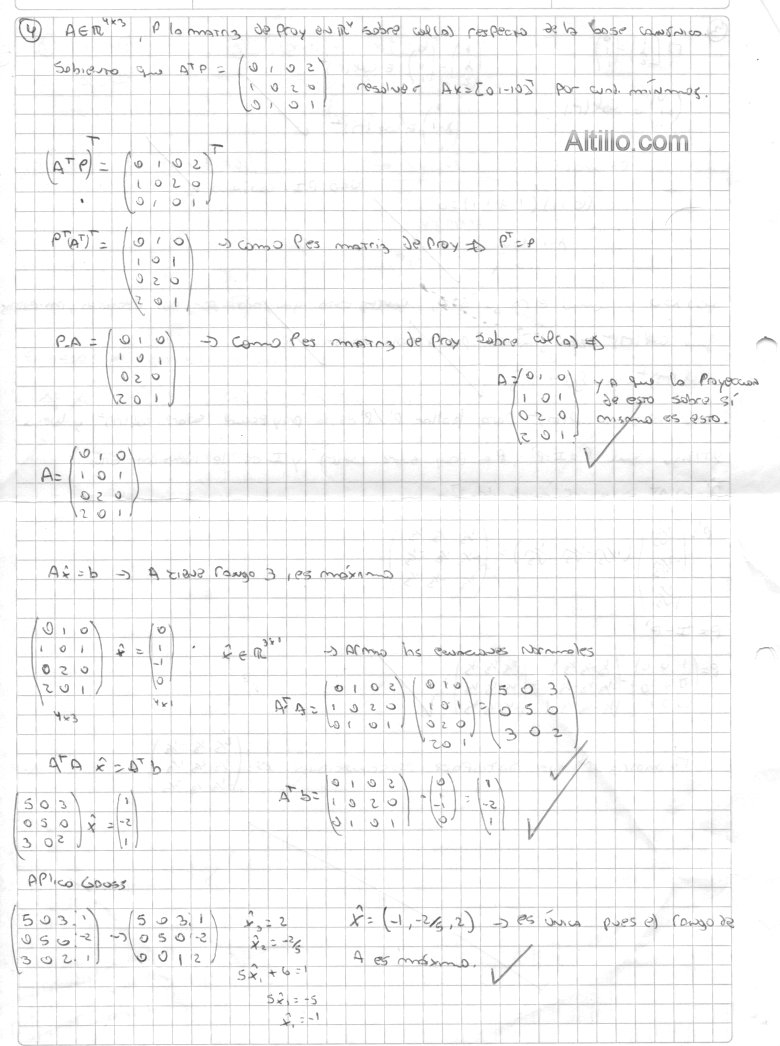 ④ A∈ℝ⁴ˣ³, P la matriz de Proy en ℝ⁴ sobre col(A) respecto de la base canónica.
Sabiendo que AᵀP = (0 1 0 2
1 0 2 0
0 1 0 1) resolver Ax=[0 1 -1 0]ᵀ por cuad. mínimos.
Altillo.com
(AᵀP)ᵀ = (0 1 0 2
1 0 2 0
0 1 0 1)ᵀ
Pᵀ(Aᵀ)ᵀ = (0 1 0
1 0 1
0 2 0
2 0 1) → como P es matriz de Proy ⇒ Pᵀ=P
P.A = (0 1 0
1 0 1
0 2 0
2 0 1) → como P es matriz de Proy sobre col(A) ⇒
A=(0 1 0
1 0 1
0 2 0
2 0 1) ya que la Proyeccion
de esto sobre sí
mismo es esto.
A= (0 1 0
1 0 1
0 2 0
2 0 1)
Ax̂=b → A tiene rango 3, es máximo
(0 1 0
1 0 1
0 2 0
2 0 1) x̂ = (0
1
-1
0) . x̂∈ℝ³ˣ¹ → Armo las ecuaciones Normales
4x3 4x1
AᵀA = (0 1 0 2
1 0 2 0
0 1 0 1) (0 1 0
1 0 1
0 2 0
2 0 1) = (5 0 3
0 5 0
3 0 2)
AᵀA x̂ = Aᵀb
Aᵀb= (0 1 0 2
1 0 2 0
0 1 0 1) · (0
1
-1
0) = (1
-2
1)
(5 0 3
0 5 0
3 0 2) x̂ = (1
-2
1)
Aplico Gauss
(5 0 3 : 1
0 5 0 : -2
3 0 2 : 1) → (5 0 3 : 1
0 5 0 : -2
0 0 1 2)
x̂₃=2
x̂₂=-2/5
5x̂₁+6=1
5x̂₁=-5
x̂₁=-1
x̂=(-1,-2/5,2) → es única pues el rango de
A es máximo.